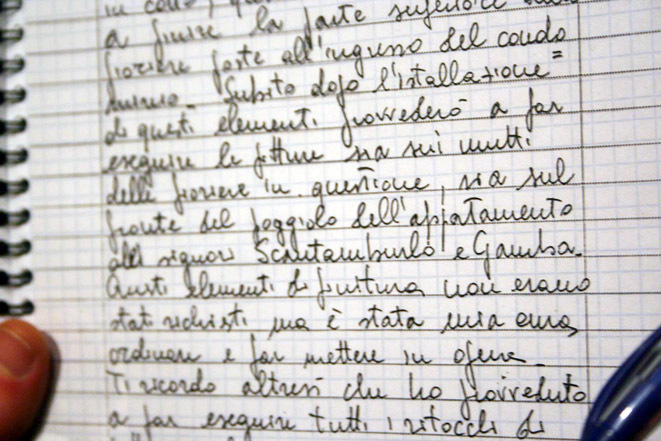 a finire la parte superiore
fioriere poste all'ingresso del condo
minio. Subito dopo l'istallazione
di questi elementi provvederò a far
eseguire le pitture sia sui muretti
delle fioriere in questione, sia sul
fronte del poggiolo dell'appartamento
dei signori Scantamburlo e Gamba.
Questi elementi di finitura non erano
stati richiesti ma è stata mia cura,
ordinare e far mettere in opera.
Ti ricordo altresì che ho provveduto
a far eseguire tutti i ritocchi di